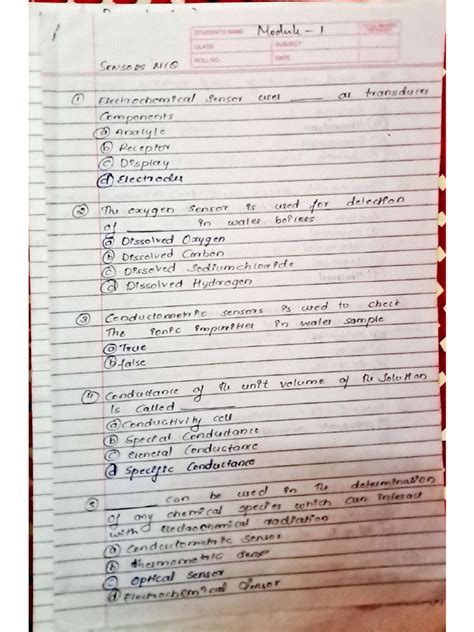 1
STUDENT'S NAME Module - 1
CLASS SUBJECT
ROLL NO. DATE
SENSORS MCQ
① Electrochemical Sensor uses _____ as transducer
Components
ⓐ Analyte
ⓑ Receptor
ⓒ Display
ⓓ Electrodes
② The oxygen sensor is used for detection
of _____ in water boilers
ⓐ Dissolved Oxygen
ⓑ Dissolved Carbon
ⓒ Dissoved Sodiumchloride
ⓓ Dissolved Hydrogen
③ Conductometric sensors is used to check
The ionic impurities in water sample
ⓐ True
ⓑ false
④ Conductance of the unit volume of the Solution
is Called _____
ⓐ Conductivity cell
ⓑ Special Conductance
ⓒ General Conductance
ⓓ Specific Conductance
⑤ _____ can be used in the determination
of any chemical species which can interact
with electrochemical radiation
ⓐ Conductometric Sensor
ⓑ thermometric Sensor
ⓒ Optical Sensor
ⓓ Electrochemical Sensor